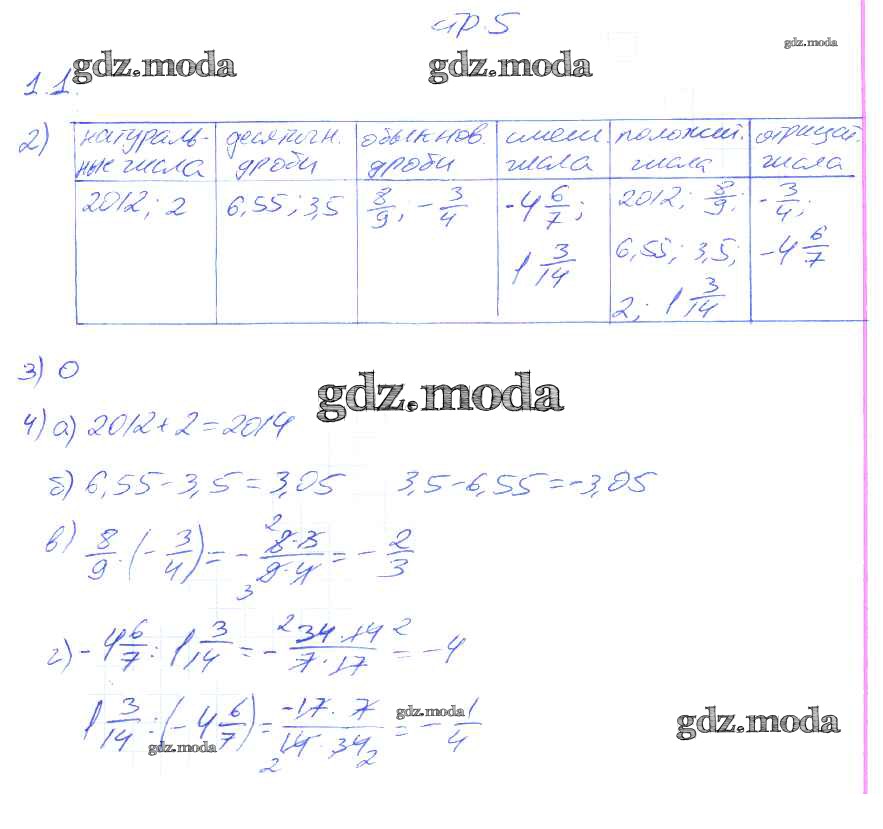 стр. 5
gdz.moda gdz.moda gdz.moda
1.1.
2) натураль- десятичн. обыкнов. смеш. положит. отрицат.
ные числа дроби дроби числа числа числа
2012; 2 6,55; 3,5 8/9; -3/4 -4 6/7; 2012; 8/9; -3/4;
1 3/14 6,55; 3,5; -4 6/7
2; 1 3/14
3) 0
gdz.moda
4) а) 2012 + 2 = 2014
б) 6,55 - 3,5 = 3,05 3,5 - 6,55 = -3,05
в) 8/9 · (-3/4) = - 2 8·3 / 3 9·4 = - 2/3
г) -4 6/7 : 1 3/14 = - 2 34·14 2 / 7·17 = -4
1 3/14 : (-4 6/7) = -17·7 / 2 14·34 2 = - 1/4
gdz.moda gdz.moda gdz.moda